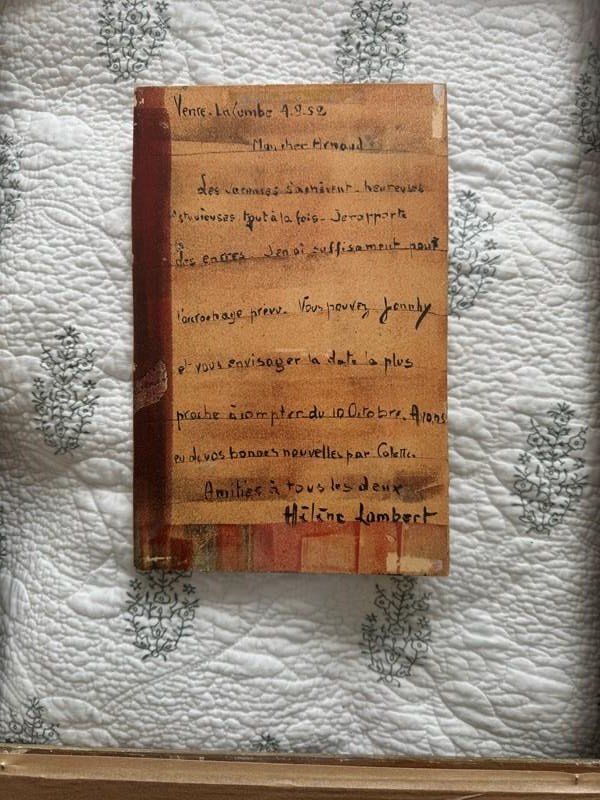 Vence. La Combe 4.9.52
Mon cher Arnaud
Les vacances s'achèvent. heureuses
studieuses tout à la fois. Je rapporte
des encres. J'en ai suffisament pour
l'accrochage prevu. Vous pouvez Jonnhy
et vous envisager la date la plus
proche à compter du 10 Octobre. Avons
eu de vos bonnes nouvelles par Colette.
Amitiés à tous les deux
Hélène Lambert